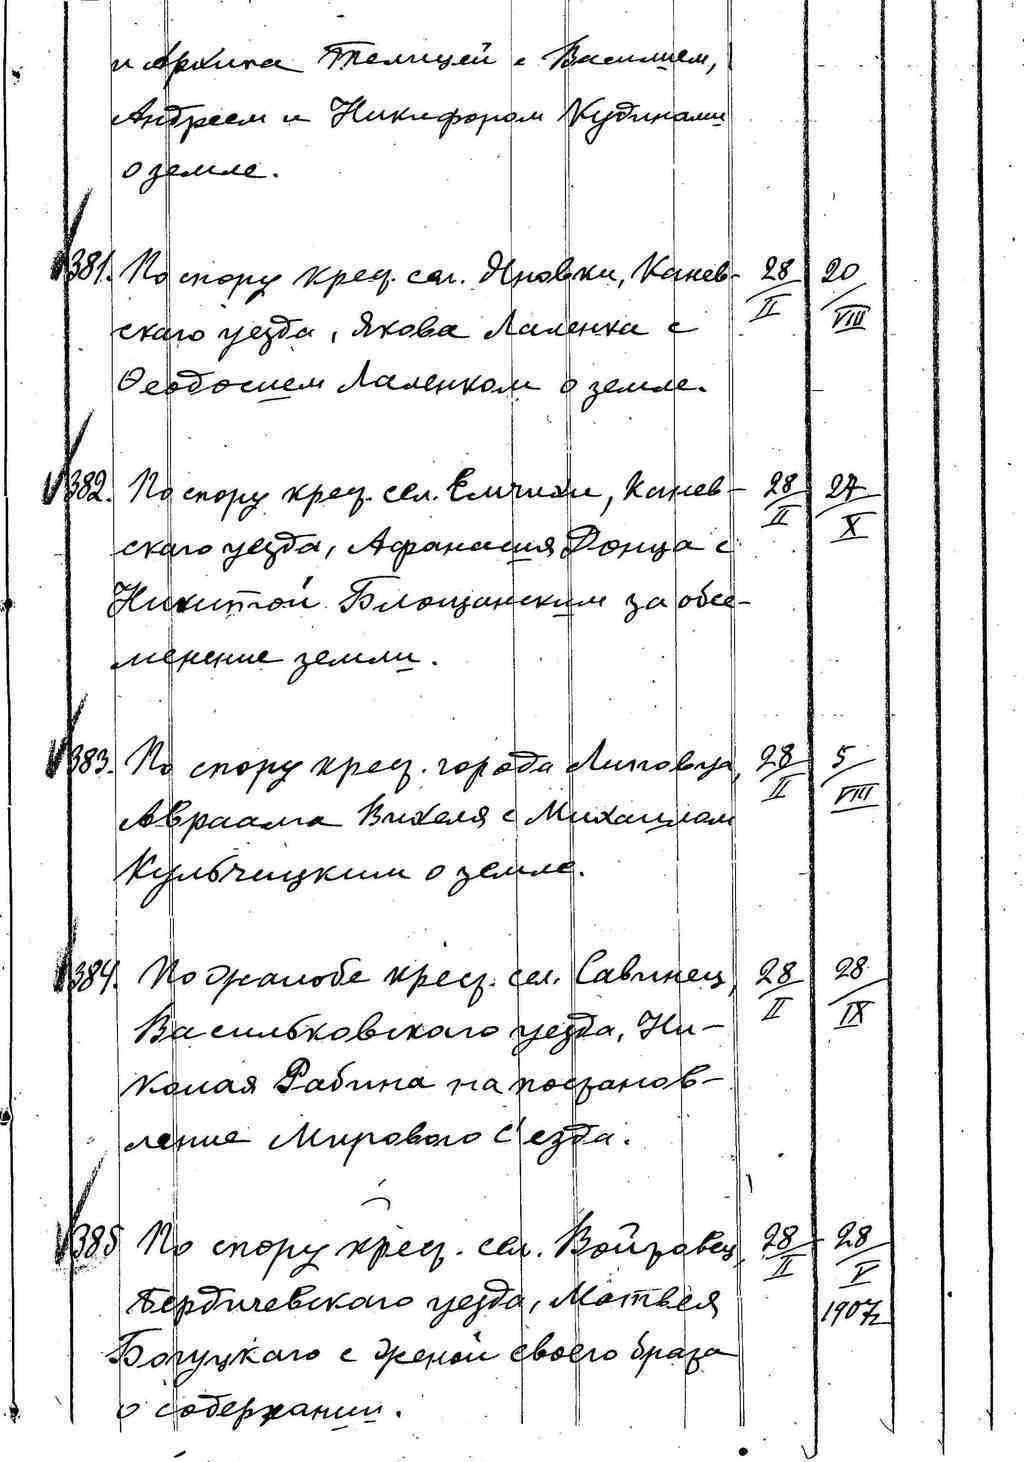 и Архипа Телицей с Василием,
Андреем и Никифором Кудинами
о земле.
381. По спору крест. сел. Яновки, Канев- 28/II 20/VIII
скаго уезда, Якова Лаленка с
Ѳеодосием Лаленком о земле.
382. По спору крест. сел. Емчихи, Канев- 28/II 27/X
скаго уезда, Афанасия Донца с
Никитой Блощанским за обсе-
менение земли.
383. По спору крест. города Липовца, 28/II 5/VIII
Авраама Вихеля с Михаилом
Кульчицким о земле.
384. По жалобе крест. сел. Савинец, 28/II 28/IX
Васильковскаго уезда, Ни-
колая Рабина на постанов-
ление Мирового С'езда.
385 По спору крест. сел. Войтовец, 28/II 28/V
Бердичевскаго уезда, Матвея 1907г
Богуцкаго с женой своего брата
о содержании.